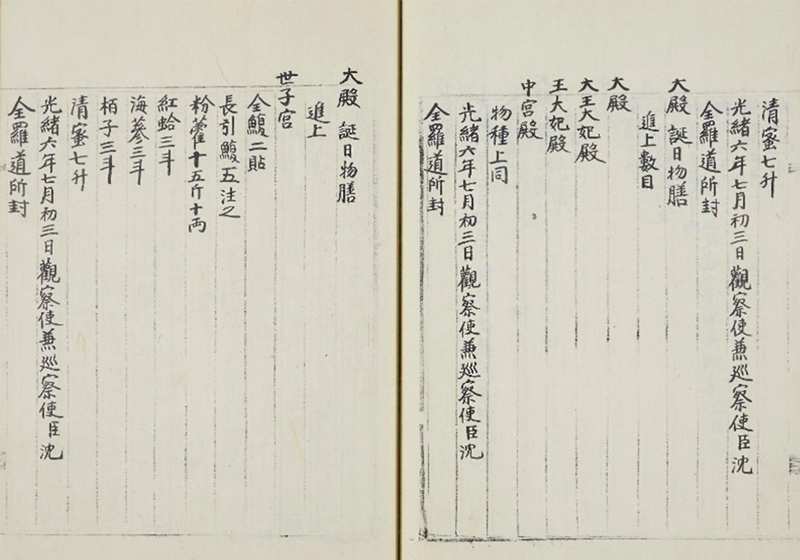 清蜜七升
光緒六年七月初三日觀察使兼巡察使臣沈
全羅道所封
大殿 誕日物膳
進上數目
大殿
大王大妃殿
王大妃殿
中宮殿
物種上同
光緒六年七月初三日觀察使兼巡察使臣沈
全羅道所封
大殿 誕日物膳
進上
世子宮
全鰒二貼
長引鰒五注之
粉藿十五斤十両
紅蛤三斗
海蔘三斗
栢子三斗
清蜜七升
光緒六年七月初三日觀察使兼巡察使臣沈
全羅道所封